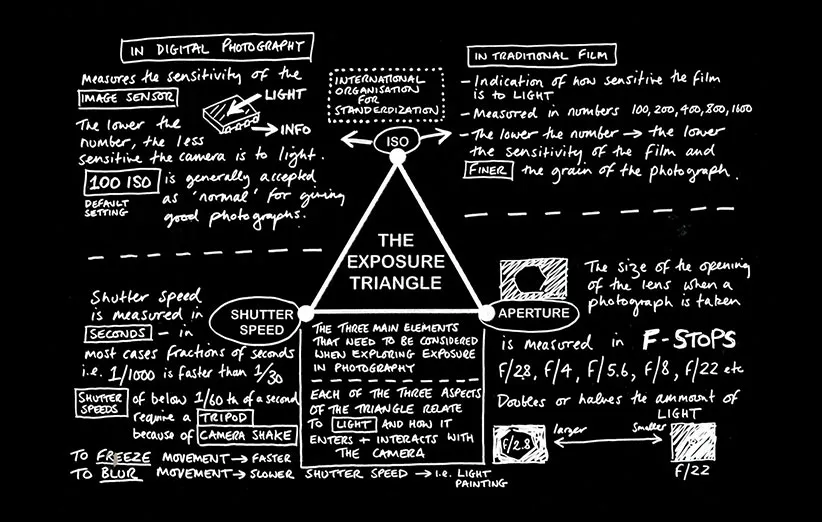 IN DIGITAL PHOTOGRAPHY
Measures the sensitivity of the
IMAGE SENSOR
LIGHT
INFO
The lower the
number, the less
sensitive the camera is to light.
100 ISO is generally accepted
DEFAULT
SETTING
as 'normal' for giving
good photographs.
INTERNATIONAL
ORGANISATION
FOR
STANDERDIZATION
ISO
IN TRADITIONAL FILM
- Indication of how sensitive the film
is to LIGHT
- Measured in numbers 100, 200, 400, 800, 1600
- The lower the number → the lower
the sensitivity of the film and
FINER the grain of the photograph.
THE
EXPOSURE
TRIANGLE
SHUTTER
SPEED
Shutter speed
is measured in
SECONDS - in
most cases fractions of seconds
i.e. 1/1000 is faster than 1/30
SHUTTER
SPEEDS
of below 1/60 th of a second
require a TRIPOD
because of CAMERA SHAKE
TO FREEZE MOVEMENT → FASTER
TO BLUR MOVEMENT → SLOWER SHUTTER SPEED → i.e. LIGHT
PAINTING
THE THREE MAIN ELEMENTS
THAT NEED TO BE CONSIDERED
WHEN EXPLORING EXPOSURE
IN PHOTOGRAPHY
EACH OF THE THREE ASPECTS
OF THE TRIANGLE RELATE
TO LIGHT AND HOW IT
ENTERS + INTERACTS WITH
THE CAMERA
APERTURE
The size of the opening
of the lens when a
photograph is taken
is measured in F-STOPS
f/2.8, f/4, f/5.6, f/8, f/22 etc
Doubles or halves the ammount of
LIGHT
larger
smaller
f/2.8
f/22